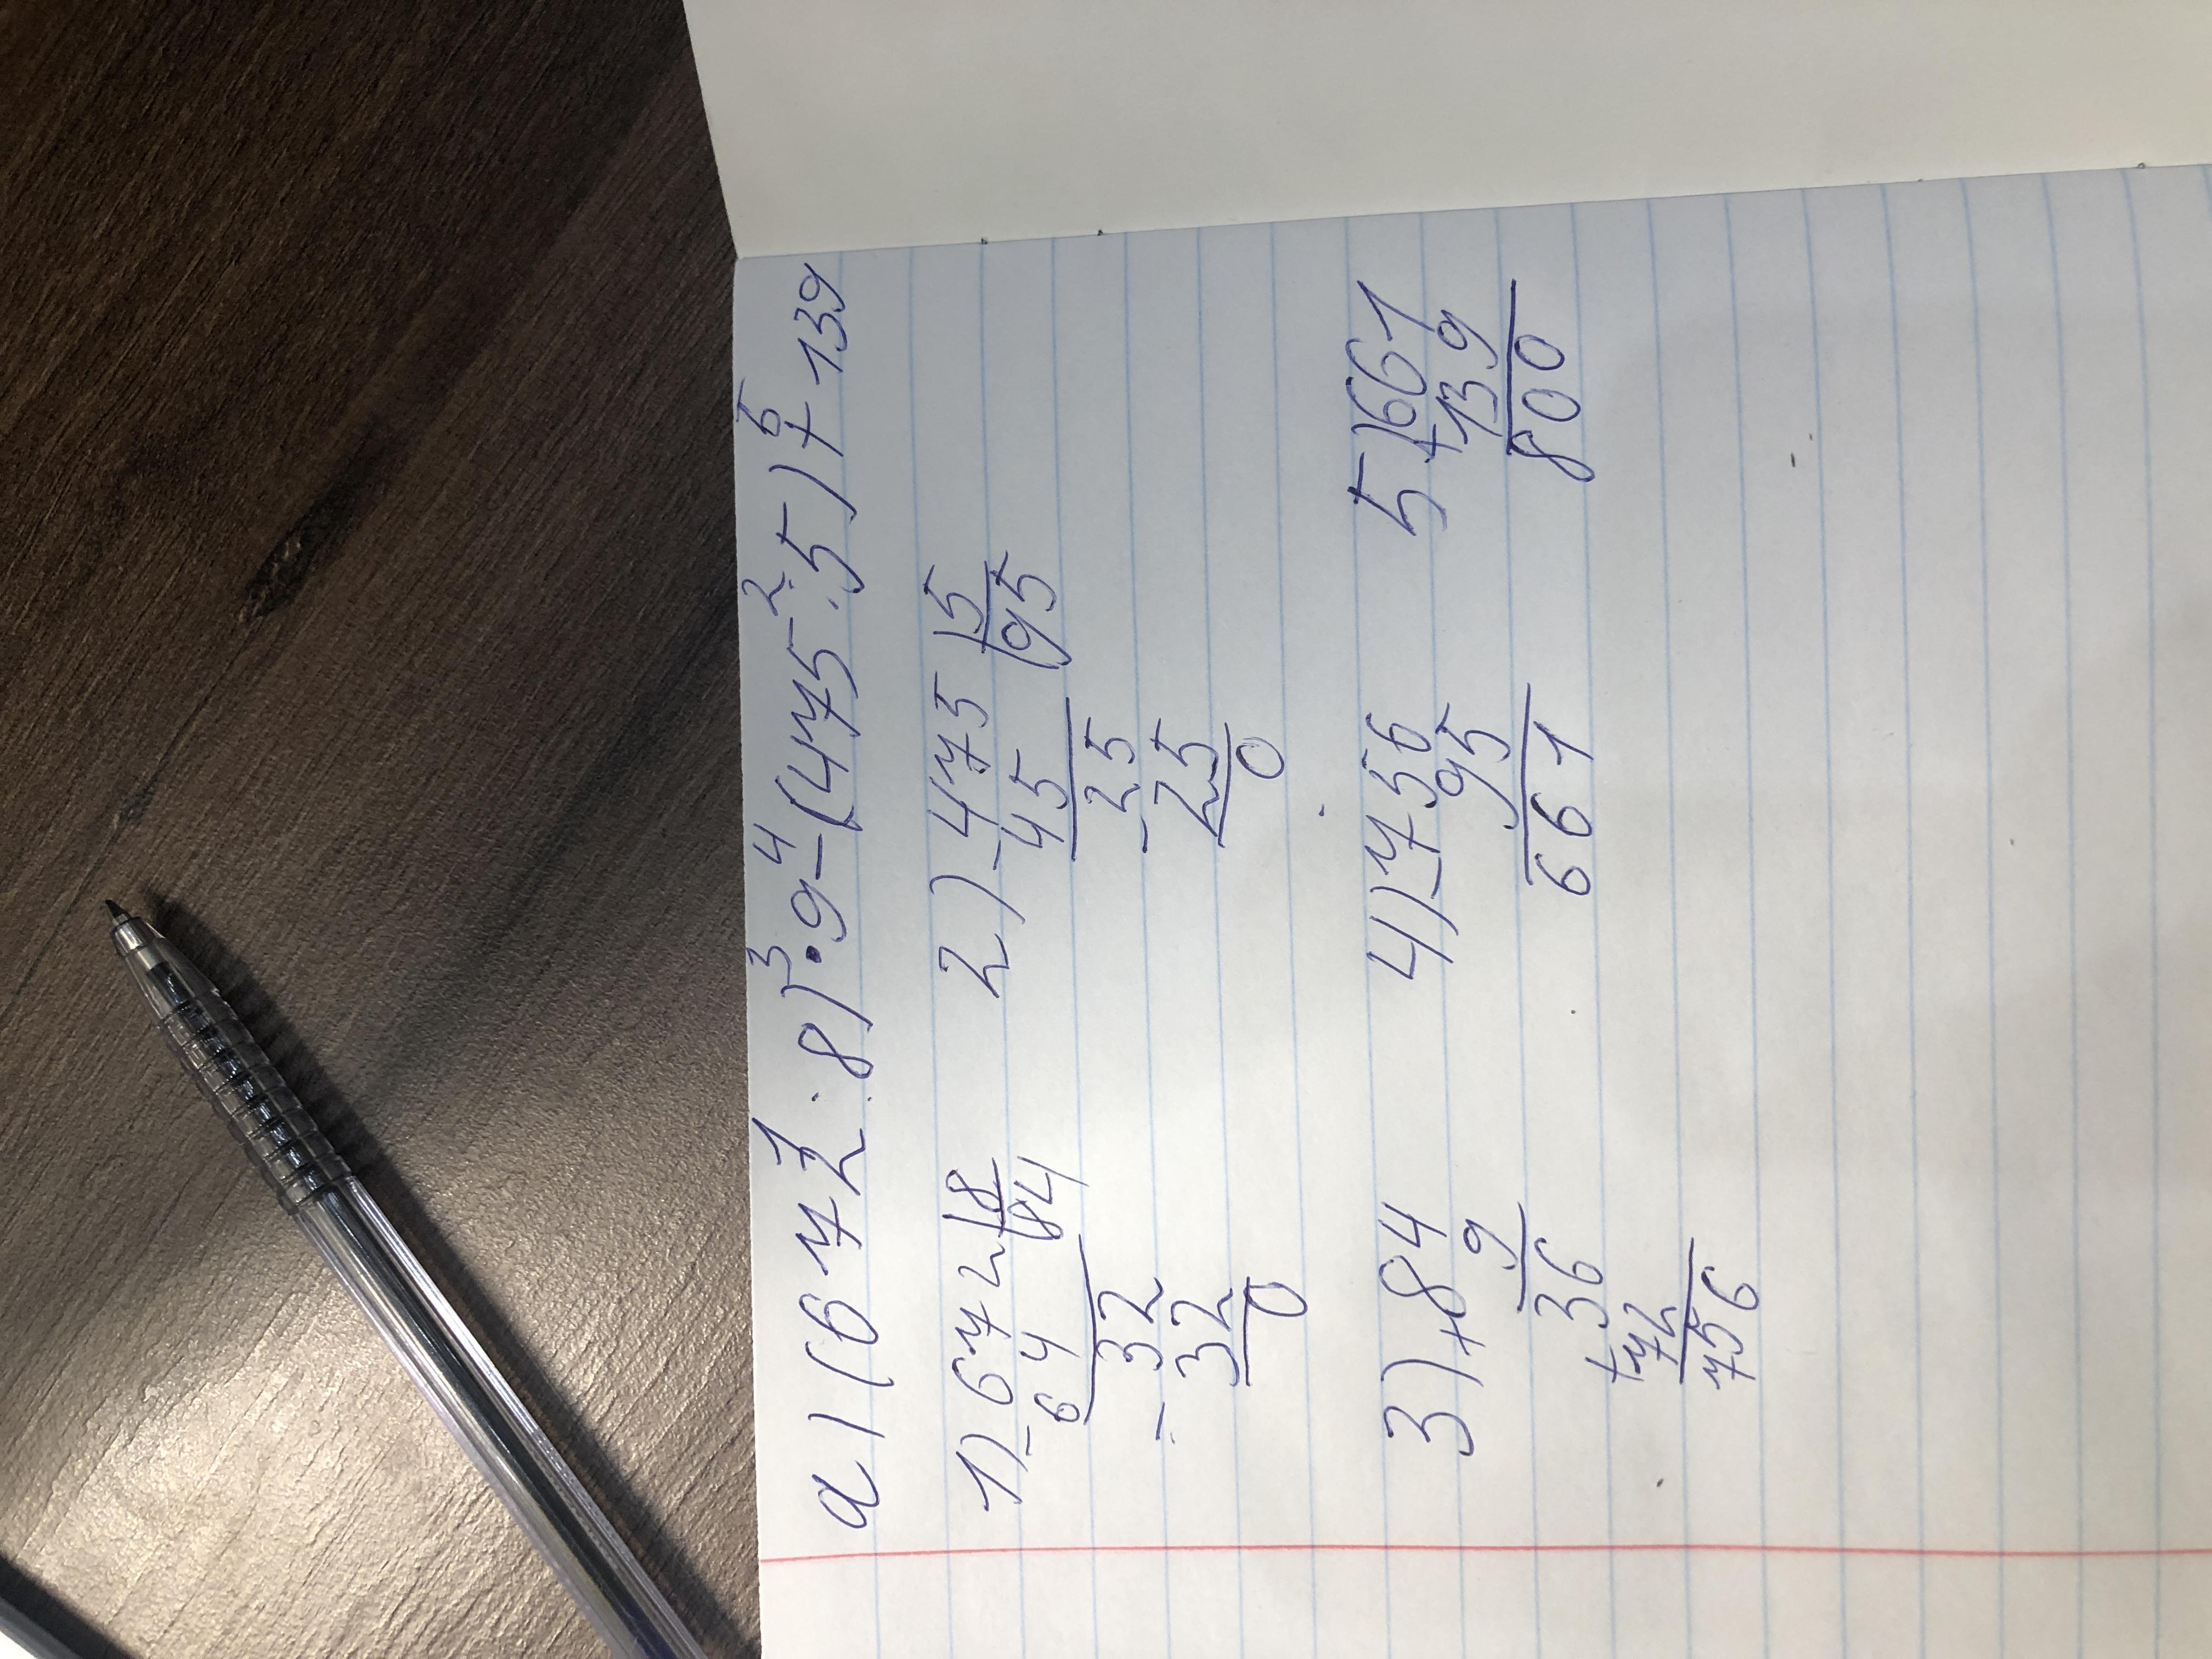 1 3 4 2 5
а) (672 : 8) • 9 – (475 : 5) + 139
1) – 672 | 8 2) – 475 | 5
64 84 45 95
– 32 – 25
32 25
0 0
3) × 84 4) – 756 5) + 661
9 95 139
36 661 800
+ 72
756